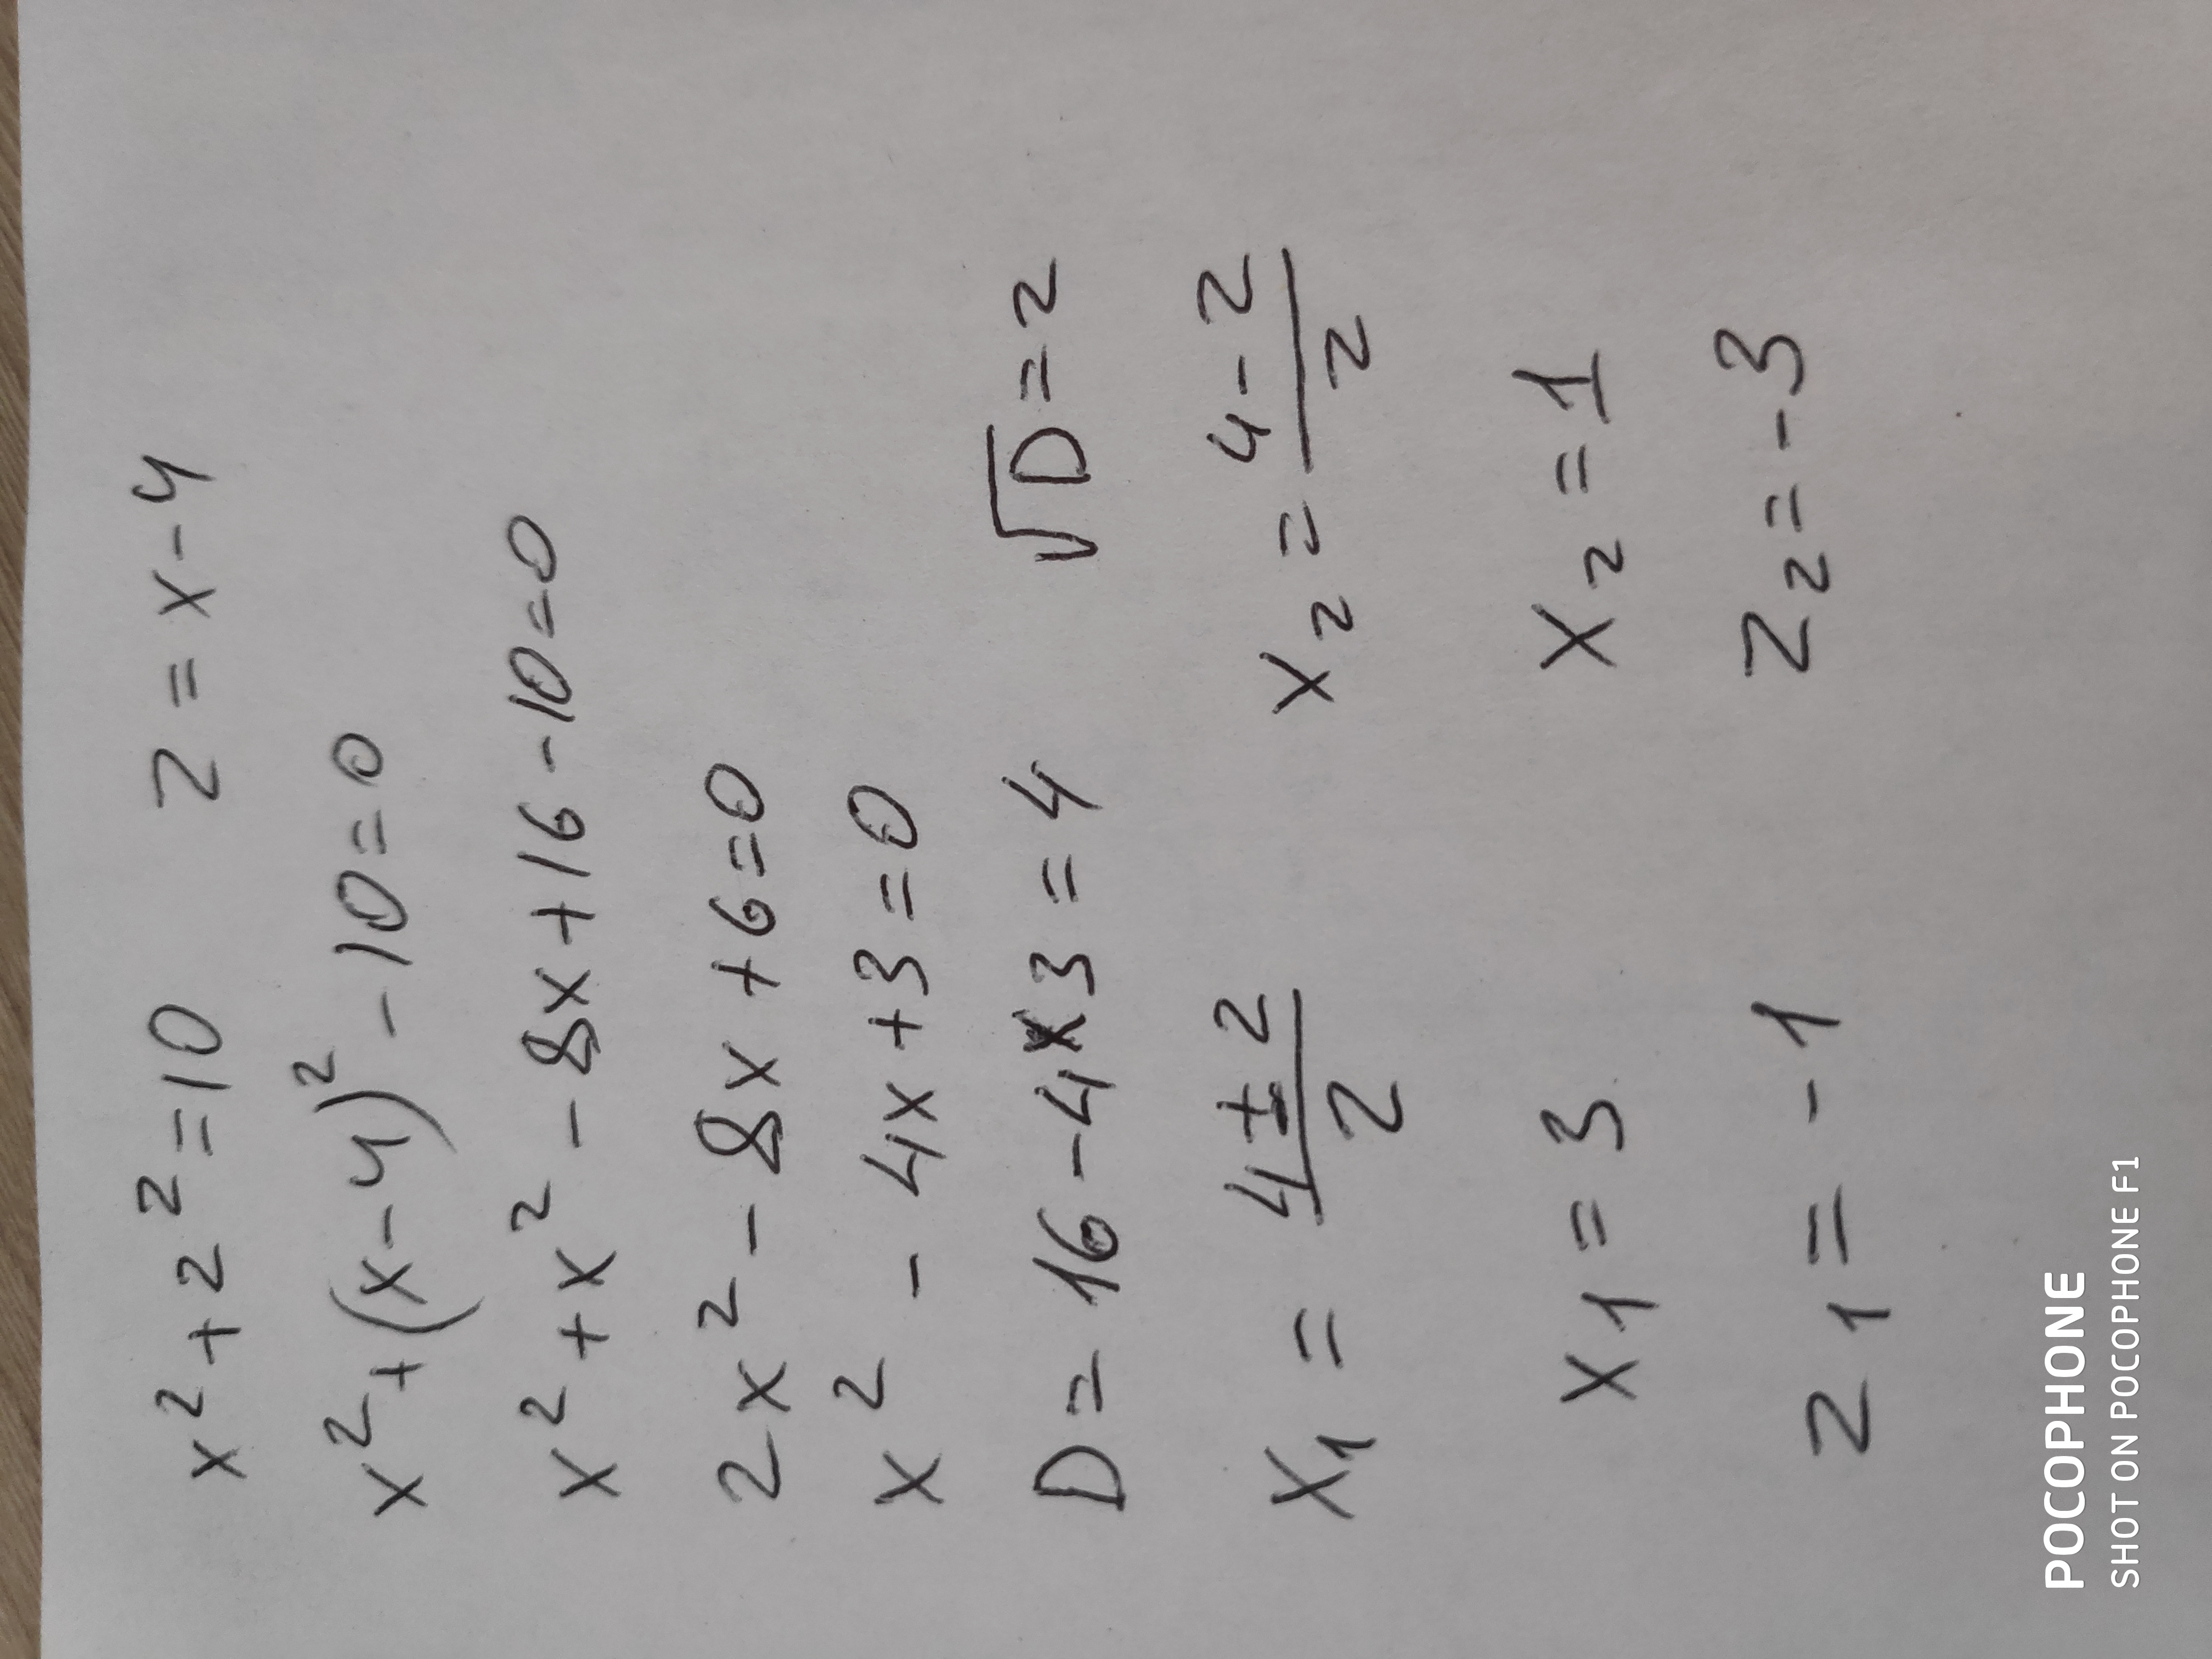 x² + z² = 10 z = x - 4
x² + (x - 4)² - 10 = 0
x² + x² - 8x + 16 - 10 = 0
2x² - 8x + 6 = 0
x² - 4x + 3 = 0
D = 16 - 4x3 = 4 √D = 2
x₁ = (4 ± 2)/2 x₂ = (4 - 2)/2
x₁ = 3 x₂ = 1
z₁ = -1 z₂ = -3
POCOPHONE
SHOT ON POCOPHONE F1